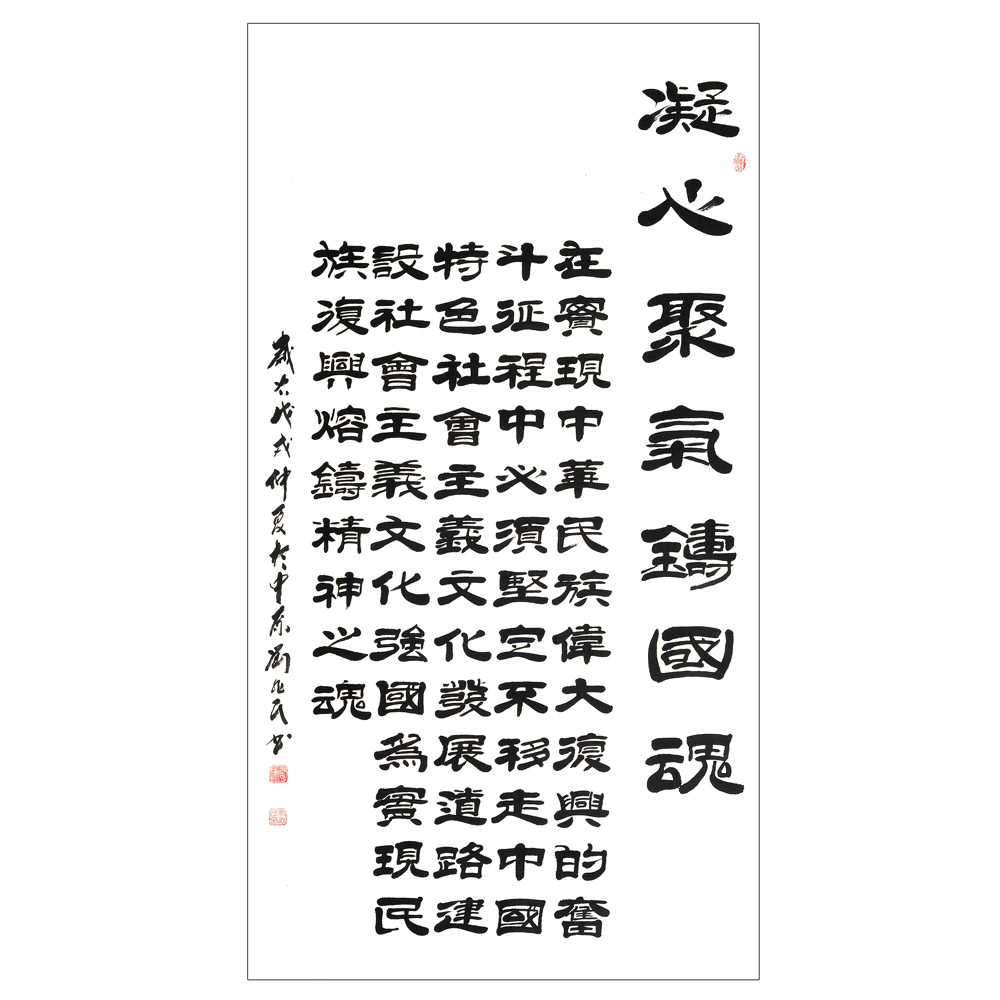 凝心聚氣鑄國魂
在實現中華民族偉大復興的奮
斗征程中必須堅定不移走中國
特色社會主義文化發展道路建
設社會主義文化強國為實現民
族復興熔鑄精神之魂
歲在戊戌仲夏於中原劉化民書